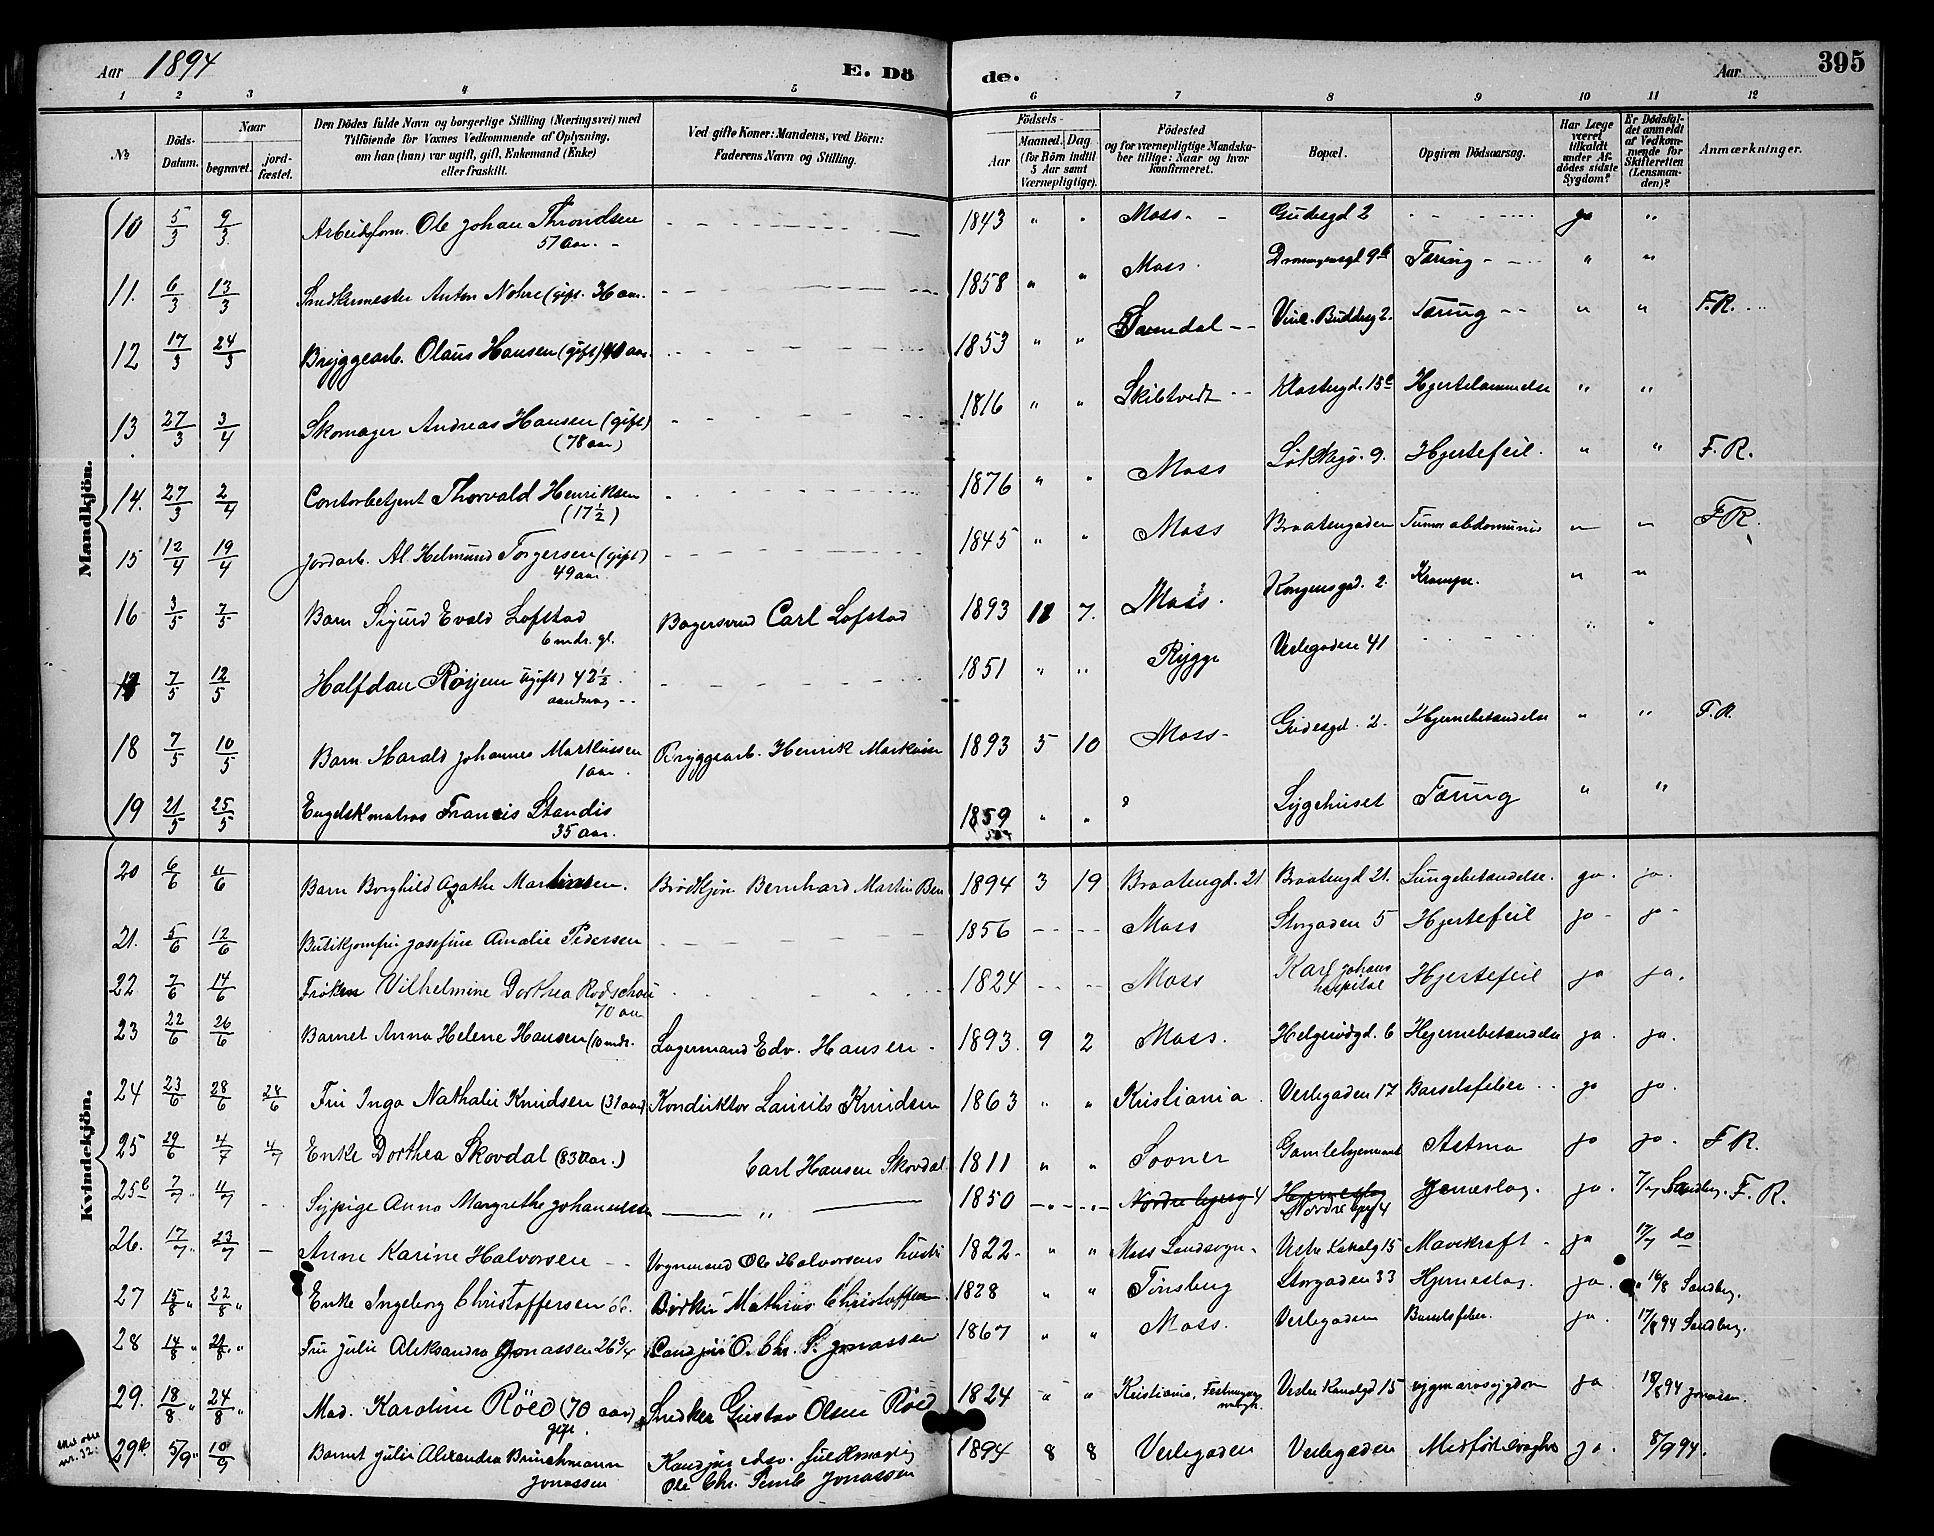 Aar 1894 E. Dö de. Aar 395
1 2 3 4 5 6 7 8 9 10 11 12
№ Döds-Datum. Naar begravet. jordfæstet. Den Dödes fulde Navn og borgerlige Stilling (Næringsvei) med Tilföiende for Voxnes Vedkommende af Oplysning, om han (hun) var ugift, gift, Enkemand (Enke) eller fraskilt. Ved gifte Koner: Mandens, ved Börn: Faderens Navn og Stilling. Födsels- Aar Maaned. Dag (for Börn indtil 5 Aar samt Værnepligtige). Födested og for værnepligtige Mandskaber tillige: Naar og hvor konfirmeret. Bopæl. Opgiven Dödsaarsag. Har Læge været tilkaldt under Afdödes sidste Sygdom? Er Dödsfaldet anmeldt af Vedkommende for Skifteretten (Lensmanden)? Anmærkninger.
Mandkjön.
10 5/3 9/3 Arbeidsform. Ole Johan Throndsen 51 aar. 1843 " " Moss Gudesgd 2 ja "
11. 6/3 13/3 Snedkermester Anton Nohre (gift. 36 aar. 1858 " " Moss. Dronningensgd 9b Tæring " "
12 17/3 24/3 Bryggearb. Olaus Hansen (gift) 40 aar. 1853 " " Vinc. Buddesg 2. Tæring " " F.R.
13 27/3 3/4 Skomager Andreas Hansen (gift) (78 aar) 1816 " " Skibtvedt Klostergd. 15 Hjertelammelse " "
14. 27/3 2/4 Contorbetjent Thorvald Henriksen (17½) 1876 " " Moss 9. Hjertefeil. " " F.R.
15 12/4 19/4 Jordarb. Al Helmund Torgersen (gift) 49 aar. 1845 " " Moss Braatengaden Tumor abdominis " " F.R.
16 3/5 7/5 Barn Sigurd Evald Lofstad 6 mdr. gl. Bagersvend Carl Lofstad 1893 11 7. Moss. Kongensgd. 2. Krampe. " "
17 7/5 12/5 Halfdan Röyem ugift) 42½ 1851 " " Rygge Verlegaden 41 " "
18 7/5 10/5 Barn Harald Johannes Markussen 1 aar. Bryggearb. Henrik Markussen 1893 5 10 Moss Gudesgd. 2. Hjernebetændelse " " F.R.
19 21/5 25/5 Engelsk matros Francis Standis 35 aar. 1859 " " ? Sygehuset Tæring " "
Kvindekjön.
20 6/6 11/6 Barn Borghild Agathe Martinsen. Brödkjörer Bernhard Martin 1894 3 19 Braatengd. 21 Braatengd 21. Lungebetændelse. ja. ja.
21. 5/6 12/6 Butikjomfru Josefine Amalie Pedersen 1856 Moss Storgaden 5 Hjertefeil ja ja
22 7/6 14/6 Frøken Vilhelmine Dorthea Rodschou 70 aar 1824 Moss Karl Johans hospital Hjertefeil ja ja.
23 22/6 26/6 Barnet Anna Helene Hansen (10 mdr. Lagermand Edv. Hansen 1893. 9 2 Moss. Helgerödgd. 6 Hjernebetændelse ja. ja.
24 23/6 28/6 28/6 Fru Inga Nathalie Knudsen (31 aar) Konduktör Laurits Knudsen 1863 " " Kristiania. Verlegaden 17 Barselsfeber ja ja.
25 29/6 4/7 4/7 Enke Dorthea Skovdal (83 aar.) Carl Hansen Skovdal 1811 " " Sooner Gamlehjemmet Astma ja ja. F.R.
25b 7/7 11/7 Sypige Anna Margrethe Johannessen " 1850 Nordre 4 Hjerneslag Nordre 4 Hjerneslag. ja. 7/7 Sandberg. F.R.
26. 17/7 23/7 Anne Karine Halvorsen Vognmand Ole Halvorsens hustr. 1822 " " Moss Landsogn Vestre Kanalg 15 Mavekræft ja 17/7 do
27 15/8 22/8 Enke Ingeborg Christoffersen 66. Mathias Christoffersen 1828 " " Tönsberg Storgaden 33 Hjerneslag. ja. 16/8 Sandberg.
28 14/8 21/8 Fru Julie Aleksandra Jonassen 26¾ Cand jur O. Chr. S. Jonassen 1867 " " Moss. Verlegaden Barselsfeber. ja. 17/8 94 Sandberg.
29. 18/8 24/8 Mad. Karoline Röed (70 aar) gift. Snedker Gustav Olsen Röed 1824 " " Kristiania, Vestre Kanalgd 15 rygmarvssygdom ja 18/8 94 Jonassen
nr. 32. 29b. 5/9 10/9 Barnet Julie Alexandra Brinchmann Jonassen Kand jur edsv. fuldmægtig Ole Chr. Semb Jonassen 1894 8 8 Verlegaden Verlegaden Medfödt svaghed ja. 8/9 94.